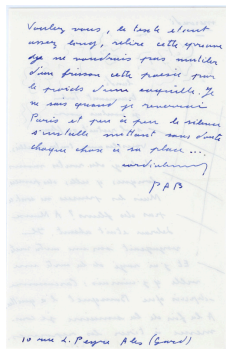 Voulez vous, le texte étant
assez long, relire cette épreuve
Je ne voudrais pas mutiler
d'un frisson cette poésie par
le poids d'une coquille. Je
ne sais quand je reverrai
Paris et peu à peu le silence
s'installe mettant sans doute
chaque chose à sa place...
cordialement
PAB
10 rue L. Peyre Alès (Gard)